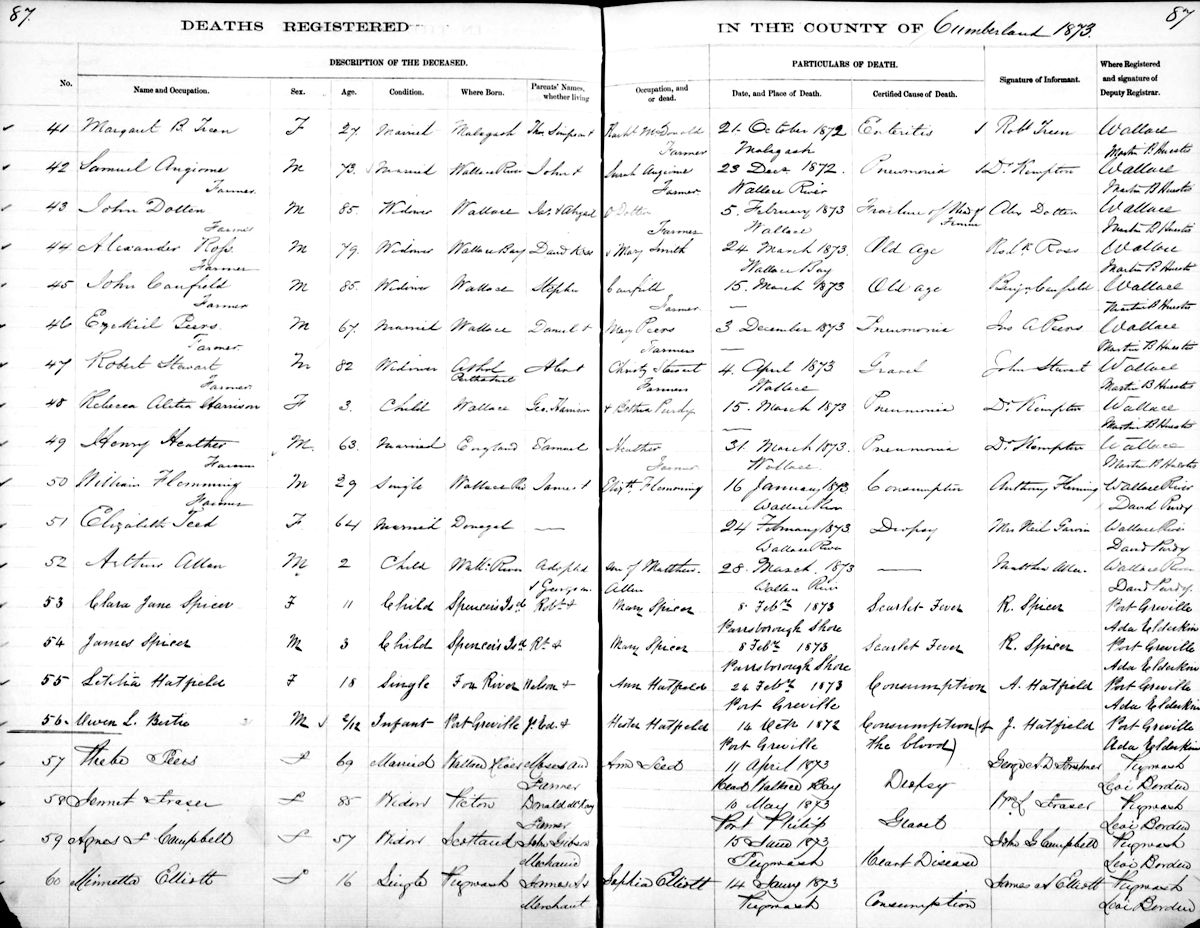 87.
87
DEATHS REGISTERED IN THE COUNTY OF Cumberland 1873.
DESCRIPTION OF THE DECEASED.
PARTICULARS OF DEATH.
No. Name and Occupation. Sex. Age. Condition. Where Born. Parents' Names, whether living Occupation, and or dead. Date, and Place of Death. Certified Cause of Death. Signature of Informant. Where Registered and signature of Deputy Registrar.
41 Margaret B. Treen F 27 Married Malagash Thos. Simpson + McDonald 21. October 1872 Enteritis Robt Treen Wallace
Farmer Malagash Martin B Huestis
42 Samuel Angione M 73 Married Wallace River John + Sarah Angione 23 Decr 1872. Pneumonia Dr. Kempton Wallace
Farmer. Farmer Wallace River Martin B Huestis
43 John Dotten M 85. Widower Wallace Jas. + Abigail Dotten 5. February 1873 Fracture of Neck of Alex Dotten Wallace
Farmer Farmer Wallace Femur Martin B Huestis
44 Alexander Ross. M 79. Widower Wallace Bay David Ross + Mary Smith 24. March 1873 Old Age Ross Wallace
Farmer Wallace Bay Martin B Huestis
45 John Canfield M 85. Widower Wallace Stephen Canfield 15. March 1873 Old age Benj. Canfield Wallace
Farmer Farmer — Martin B Huestis
46 Ezekiel Peers M 67. Married Wallace Daniel + Mary Peers 3 December 1873 Pneumonia Jno A Peers Wallace
Farmer. Farmers — Martin B Huestis
47 Robert Stewart M 82 Widower Athol Alexr + Christy Stewart 4. April 1873 Gravel John Stewart Wallace
Farmer Perthshire Farmers Wallace Martin B Huestis
48 Rebecca Alitia Harrison F 3. Child Wallace Geo. Harrison + Bethia Purdy 15. March 1873 Pneumonia Dr. Kempton Wallace
— Martin B Huestis
49 Henry Heather M. 63. Married England Samuel Heather 31. March 1873. Pneumonia Dr Kempton Wallace
Farmer Farmer Wallace. Martin B Huestis
50 William Flemming M 29 Single Wallace Riv James + Elizth. Flemming 16 January 1873 Consumption Anthony Fleming Wallace River
Farmer Wallace River David Purdy
51 Elizabeth Teed F 64 Married Donegal — 24 February 1873 Dropsy Mrs Neil Garvin Wallace River
Wallace River David Purdy
52 Arthur Allen M 2 Child Wallc River Adopted son of Matthew. 28. March. 1873 — Matthew Allen Wallace River
+ Georgina Allen Wallace River David Purdy.
53 Clara Jane Spicer F 11 Child Spencer's Isd Robt + Mary Spicer 8 Feby 1873 Scarlet Fever R. Spicer Port Greville
Parrsborough Shore Ada Elderkin
54 James Spicer M 3 Child Spencer's Isd Rt. + Mary Spicer 8 Feby 1873 Scarlet Fever R. Spicer Port Greville
Parrsborough Shore Ada Elderkin
55 Letitia Hatfield F 18 Single Fox River Nelson + Ann Hatfield 24 Feby 1873 Consumption A. Hatfield Port Greville
Port Greville Ada Elderkin
56 Owen L. M 2/12 Infant Port Greville + Hester Hatfield 14 Octr 1872 Consumption (of J. Hatfield Port Greville
Port Greville the blood) Ada Elderkin
57 Phebe Peers F 69 Married Wallace River Moses and Ann Seed 11 April 1873 Dropsy George Pugwash
Farmer Head Wallace Bay Levi Borden
58 Jennet Fraser F 85 Widow Pictou Donald McKay 10 May 1873 Gravel Wm L Fraser Pugwash
Farmer Port Philip Levi Borden
59 Agnes F Campbell F 57 Widow Scotland John Gibson 15 June 1873 Heart Disease John G Campbell Pugwash
Mechanic Pugwash Levi Borden
60 Minnetta Elliott F 16 Single Pugwash James A + Sophia Elliott 14 Jany 1873 Consumption James A Elliott Pugwash
Merchant Pugwash Levi Borden